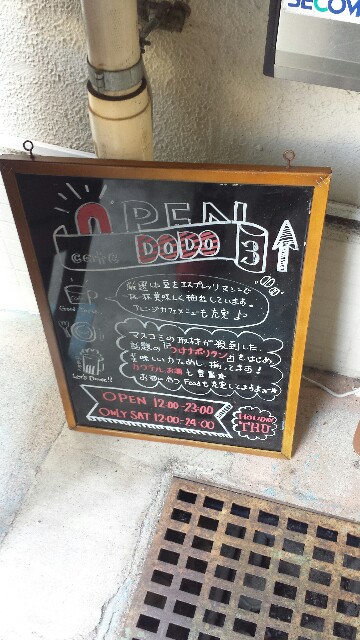 SECOM
OPEN
CAFE DODO 3
厳選した豆をエスプレッソマシーンで
一杯一杯美味しく抽れています。
アレンジカフェメニューも充実♪
マスコミの取材が殺到した、
話題の「つけナポリタン」をはじめ、
美味しいカフェめし揃ってます!
カクテル、お酒も豊富★
Foodも充実してますよぉ★
Let's Dance!!
OPEN 12:00-23:00
ONLY SAT 12:00-24:00
HOLIDAY
THU